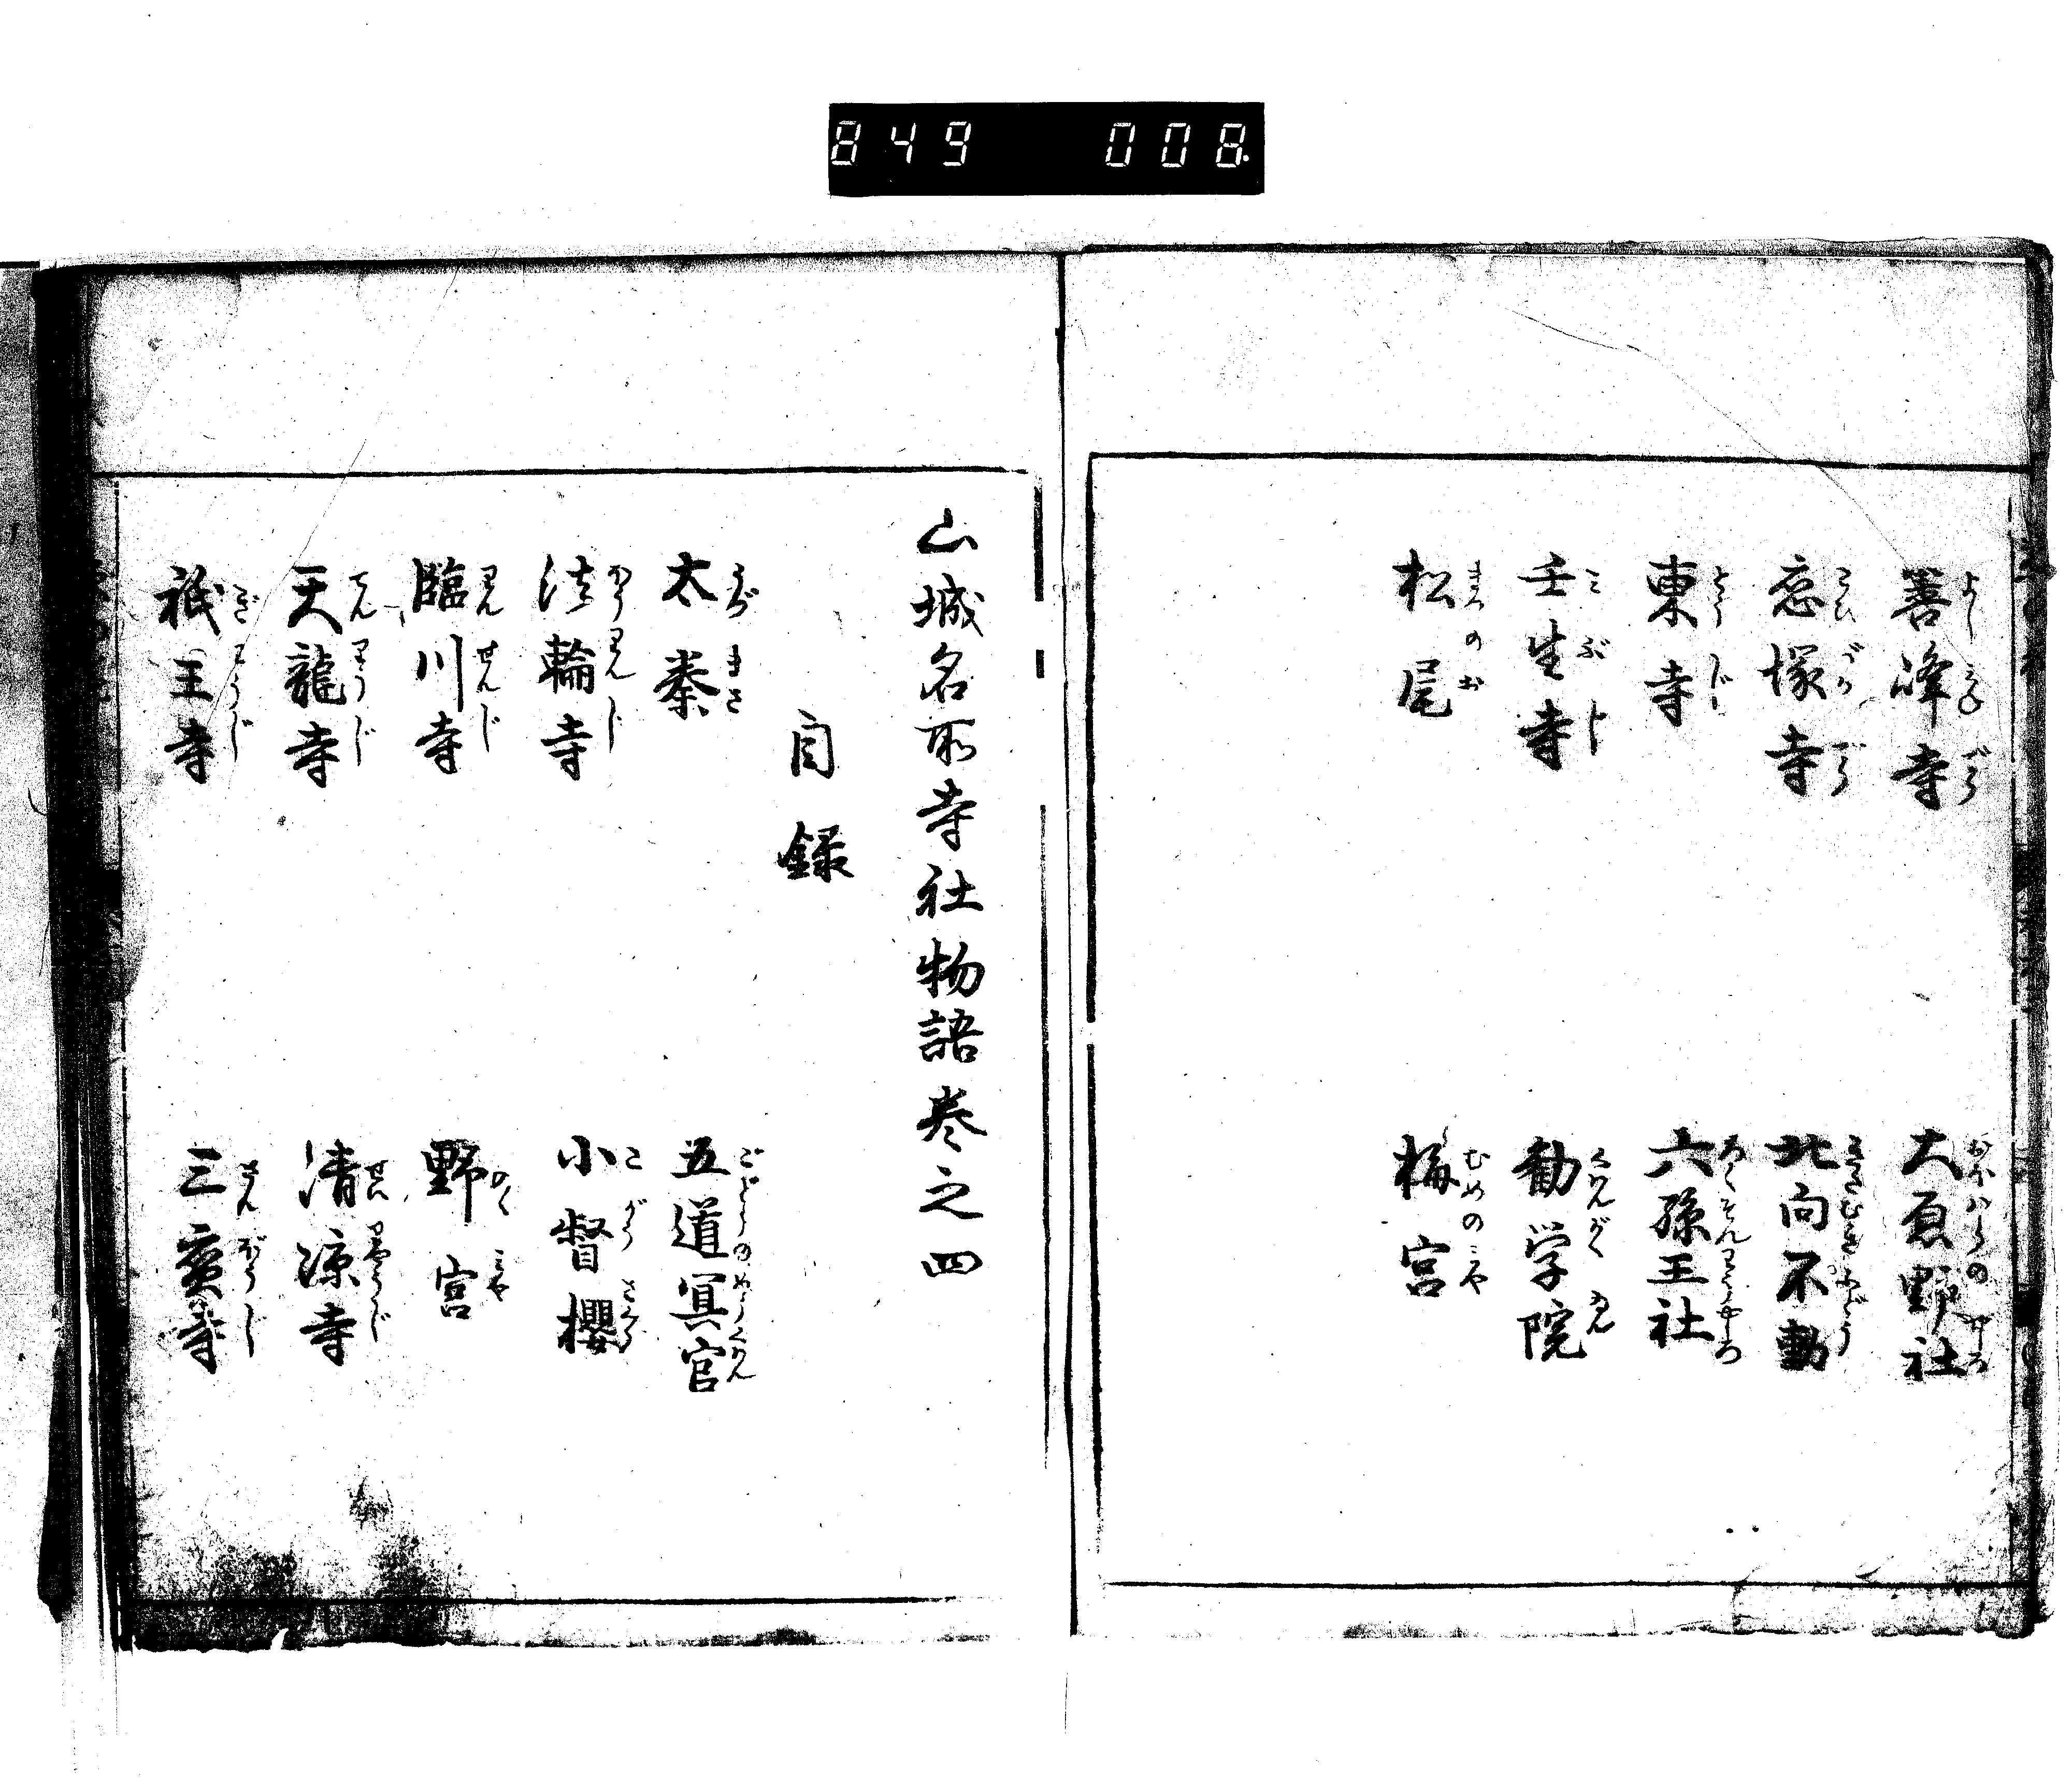 849 008
善峰寺
大原野社
恋塚寺
北向不動
東寺
六孫王社
壬生寺
勧学院
松尾
梅宮
山城名所寺社物語巻之四
目録
太秦
五道冥官
法輪寺
小督櫻
臨川寺
野宮
天龍寺
清涼寺
祇王寺
三寳寺